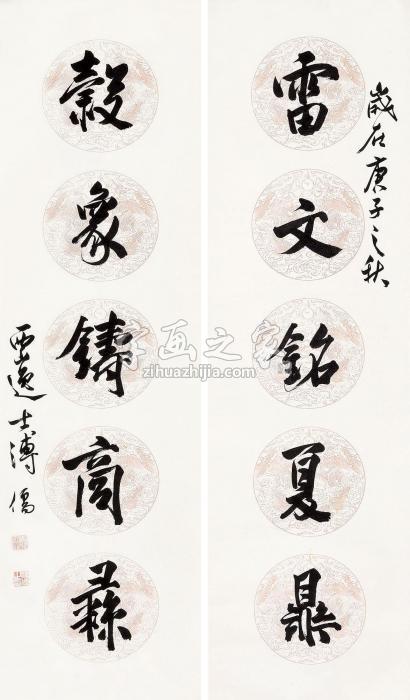 歲在庚子之秋
雷文銘夏鼎
穀象鑄商彝
西山逸士溥儒
字画之家
zihuazhijia.com